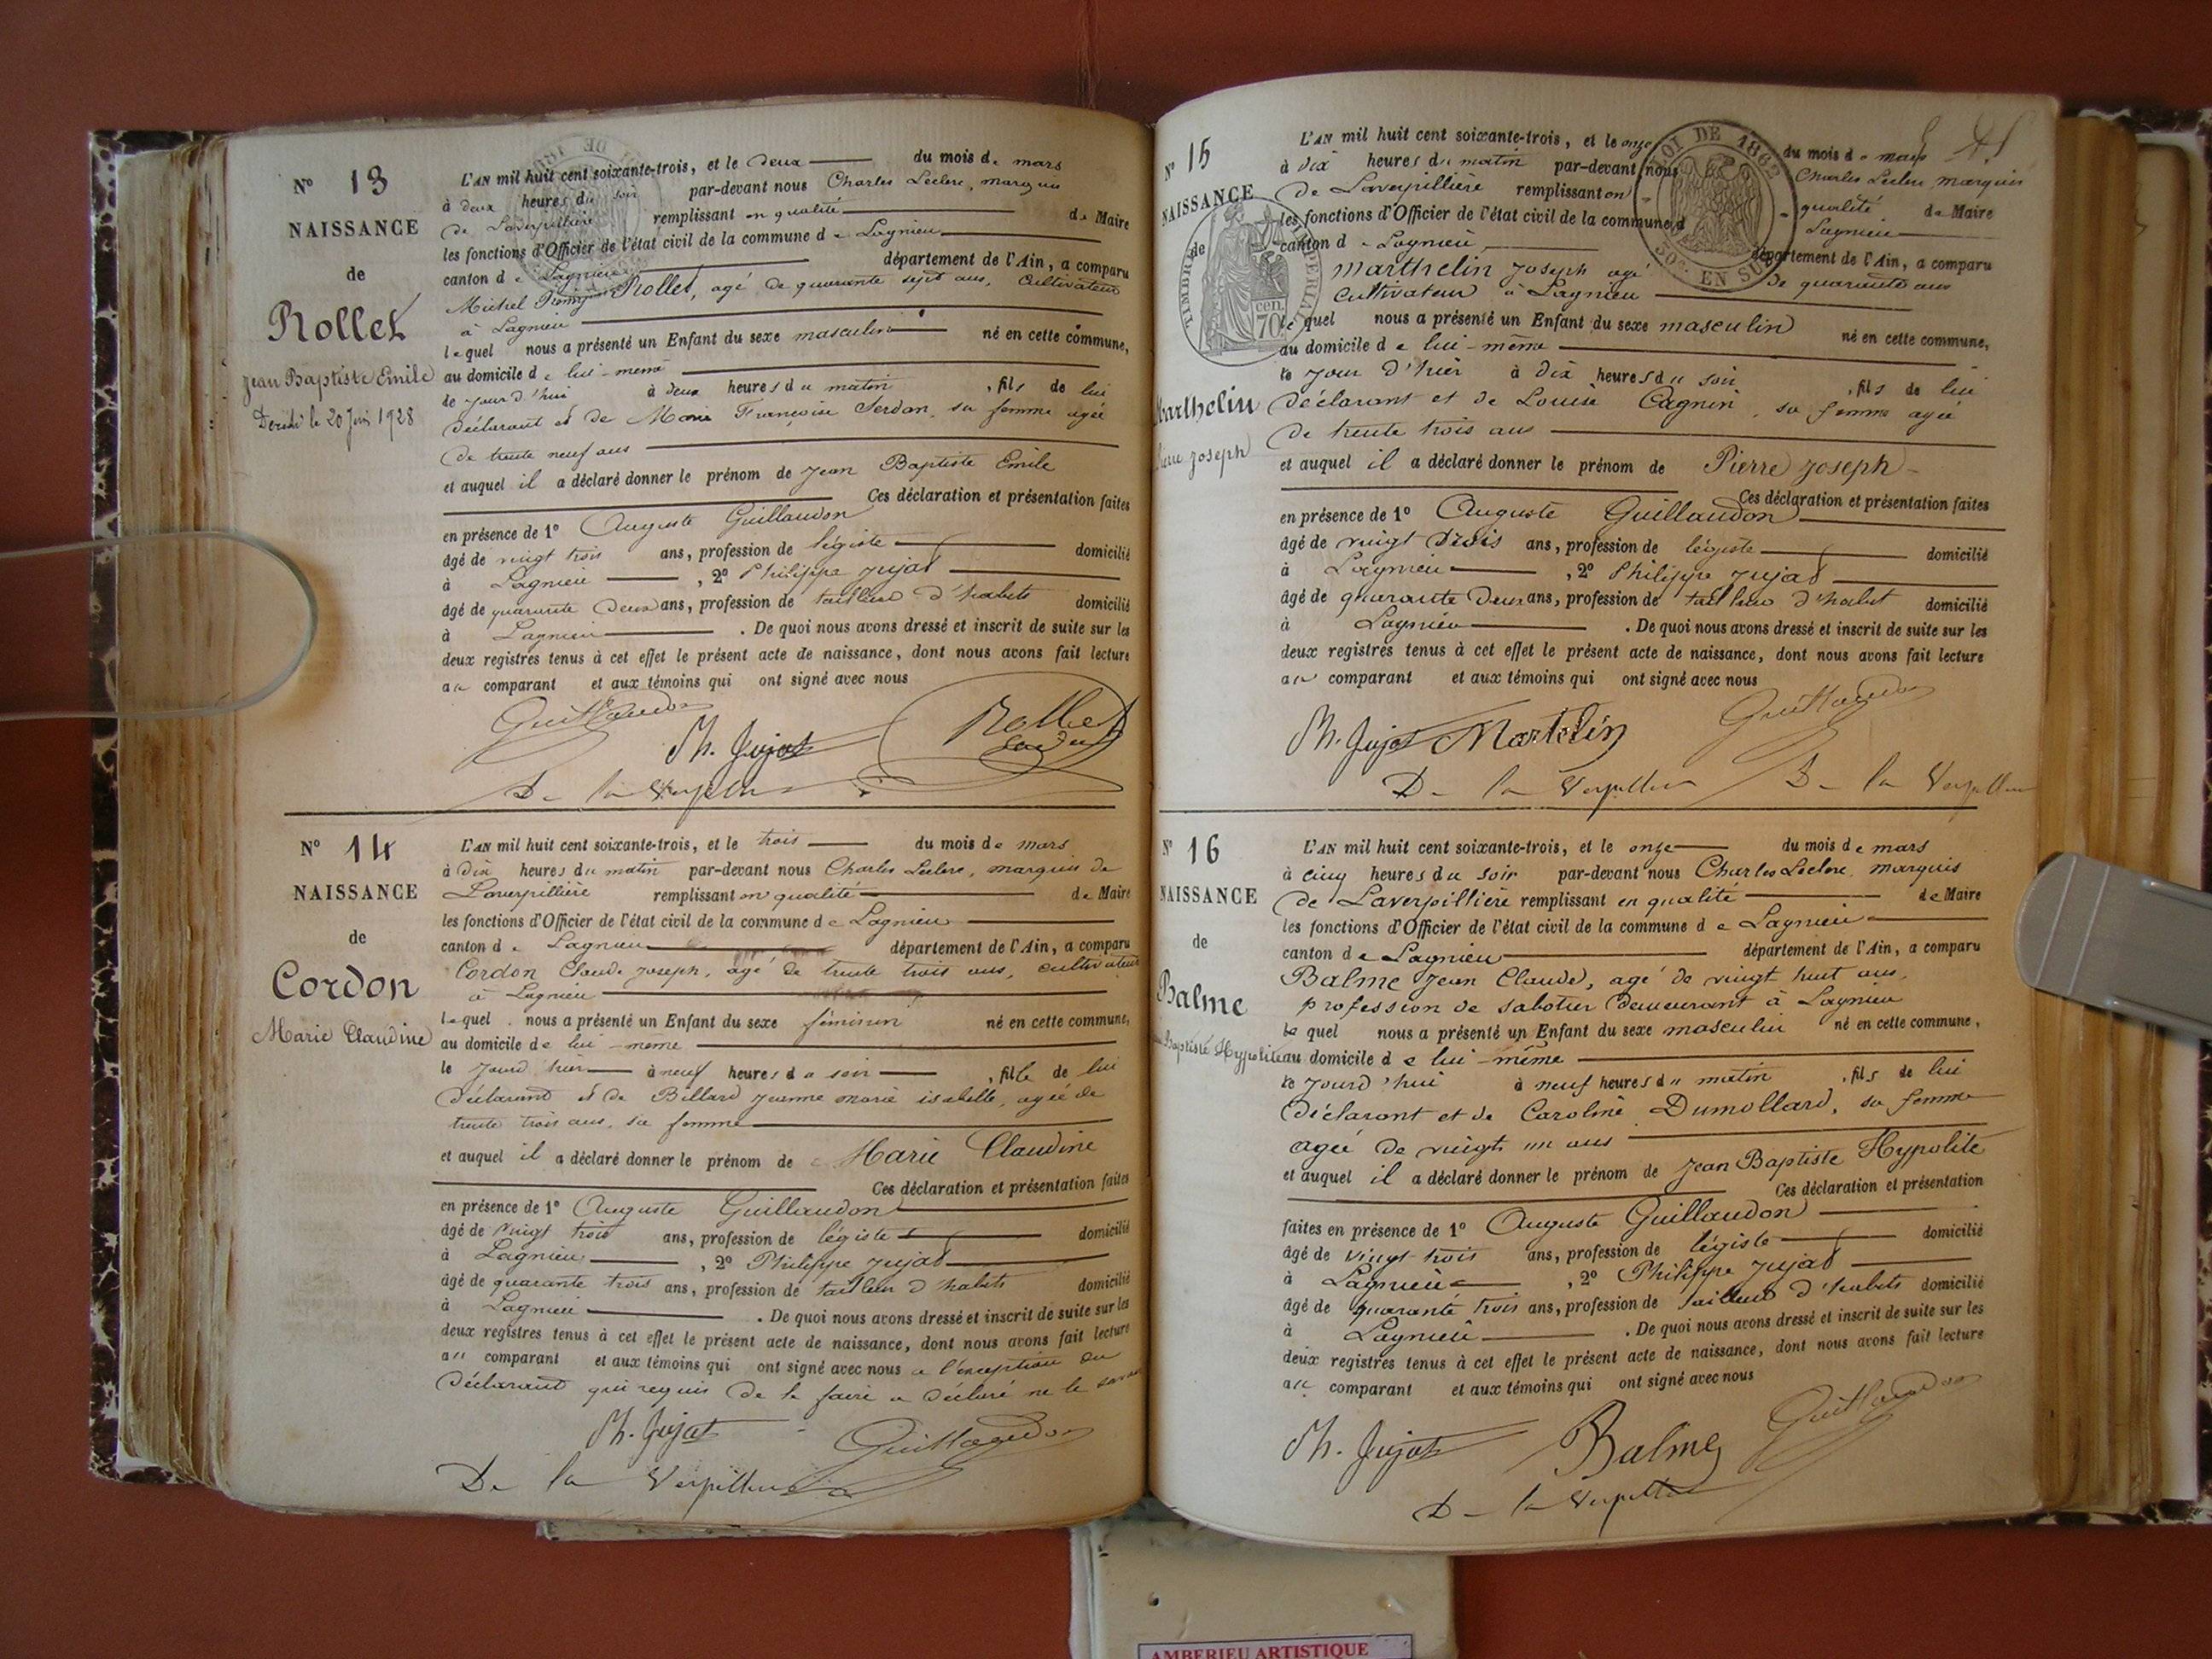 N° 13
NAISSANCE
de
Rollet
Jean Baptiste Emile
Décédé le 20 Juin 1928
L'AN mil huit cent soixante-trois, et le deux du mois de mars
à deux heures du soir par-devant nous Charles Leclerc, marquis
de Laverpillière remplissant en qualité de Maire
les fonctions d'Officier de l'état civil de la commune de Lagnieu
canton de Lagnieu département de l'Ain, a comparu
Michel Rollet, agé de quarante sept ans, cultivateur
à Lagnieu
lequel nous a présenté un Enfant du sexe masculin né en cette commune,
au domicile de lui-même
le jour d'hui à deux heures du matin, fils de lui
déclarant et de Marie Françoise Serdon, sa femme agée
de trente neuf ans
et auquel il a déclaré donner le prénom de Jean Baptiste Emile
Ces déclaration et présentation faites
en présence de 1° Auguste Guillaudon
âgé de vingt trois ans, profession de légiste domicilié
à Lagnieu, 2° Philippe Jujat
âgé de quarante deux ans, profession de tailleur d'habits domicilié
à Lagnieu. De quoi nous avons dressé et inscrit de suite sur les
deux registres tenus à cet effet le présent acte de naissance, dont nous avons fait lecture
au comparant et aux témoins qui ont signé avec nous
Guillaudon
Ph. Jujat
Rollet
De la Verpillière
N° 14
NAISSANCE
de
Cordon
Marie Claudine
L'AN mil huit cent soixante-trois, et le trois du mois de mars
à dix heures du matin par-devant nous Charles Leclerc, marquis de
Laverpillière remplissant en qualité de Maire
les fonctions d'Officier de l'état civil de la commune de Lagnieu
canton de Lagnieu département de l'Ain, a comparu
Cordon Claude Joseph, agé de trente trois ans, cultivateur
à Lagnieu
lequel nous a présenté un Enfant du sexe féminin né en cette commune,
au domicile de lui-même
le jourd'hier à neuf heures du soir, fille de lui
déclarant et de Billard Jeanne marie isabelle, agée de
trente trois ans, sa femme
et auquel il a déclaré donner le prénom de Marie Claudine
Ces déclaration et présentation faites
en présence de 1° Auguste Guillaudon
âgé de vingt trois ans, profession de légiste domicilié
à Lagnieu, 2° Philippe Jujat
âgé de quarante trois ans, profession de tailleur d'habits domicilié
à Lagnieu. De quoi nous avons dressé et inscrit de suite sur les
deux registres tenus à cet effet le présent acte de naissance, dont nous avons fait lecture
au comparant et aux témoins qui ont signé avec nous a l'exception du
déclarant qui requis de le faire a déclaré ne le savoir
Ph. Jujat
Guillaudon
De la Verpillière
N° 15
NAISSANCE
de
Marthelin
Pierre Joseph
TIMBRE IMPERIAL
70 cen.
LOI DE 1862
30c. EN SUS
L'AN mil huit cent soixante-trois, et le onze du mois de mars
à dix heures du matin par-devant nous Charles Leclerc marquis
de Laverpillière remplissant en qualité de Maire
les fonctions d'Officier de l'état civil de la commune d Lagnieu
canton de Lagnieu département de l'Ain, a comparu
Marthelin Joseph agé de quarante ans
cultivateur à Lagnieu
lequel nous a présenté un Enfant du sexe masculin né en cette commune,
au domicile de lui-même
le jour d'hier à dix heures du soir, fils de lui
déclarant et de Louise Cagnin, sa femme agée
de trente trois ans
et auquel il a déclaré donner le prénom de Pierre Joseph
Ces déclaration et présentation faites
en présence de 1° Auguste Guillaudon
âgé de vingt trois ans, profession de légiste domicilié
à Lagnieu, 2° Philippe Jujat
âgé de quarante deux ans, profession de tailleur d'habit domicilié
à Lagnieu. De quoi nous avons dressé et inscrit de suite sur les
deux registres tenus à cet effet le présent acte de naissance, dont nous avons fait lecture
au comparant et aux témoins qui ont signé avec nous
Guillaudon
Ph. Jujat Martelin
De la Verpillière De la Verpillière
N° 16
NAISSANCE
de
Balme
Jean Baptiste Hypolite
L'AN mil huit cent soixante-trois, et le onze du mois de mars
à cinq heures du soir par-devant nous Charles Leclerc, marquis
de Laverpillière remplissant en qualité de Maire
les fonctions d'Officier de l'état civil de la commune de Lagnieu
canton de Lagnieu département de l'Ain, a comparu
Balme Jean Claude, agé de vingt huit ans,
profession de sabotier demeurant à Lagnieu
lequel nous a présenté un Enfant du sexe masculin né en cette commune,
au domicile de lui-même
le jourd'hui à neuf heures du matin, fils de lui
déclarant et de Caroline Dumollard, sa femme
agée de vingt un ans
et auquel il a déclaré donner le prénom de Jean Baptiste Hypolite
Ces déclaration et présentation
faites en présence de 1° Auguste Guillaudon
âgé de vingt trois ans, profession de légiste domicilié
à Lagnieu, 2° Philippe Jujat
âgé de quarante trois ans, profession de tailleur d'habits domicilié
à Lagnieu. De quoi nous avons dressé et inscrit de suite sur les
deux registres tenus à cet effet le présent acte de naissance, dont nous avons fait lecture
au comparant et aux témoins qui ont signé avec nous
Guillaudon
Ph. Jujat Balme
De la Verpillière
AMBERIEU ARTISTIQUE